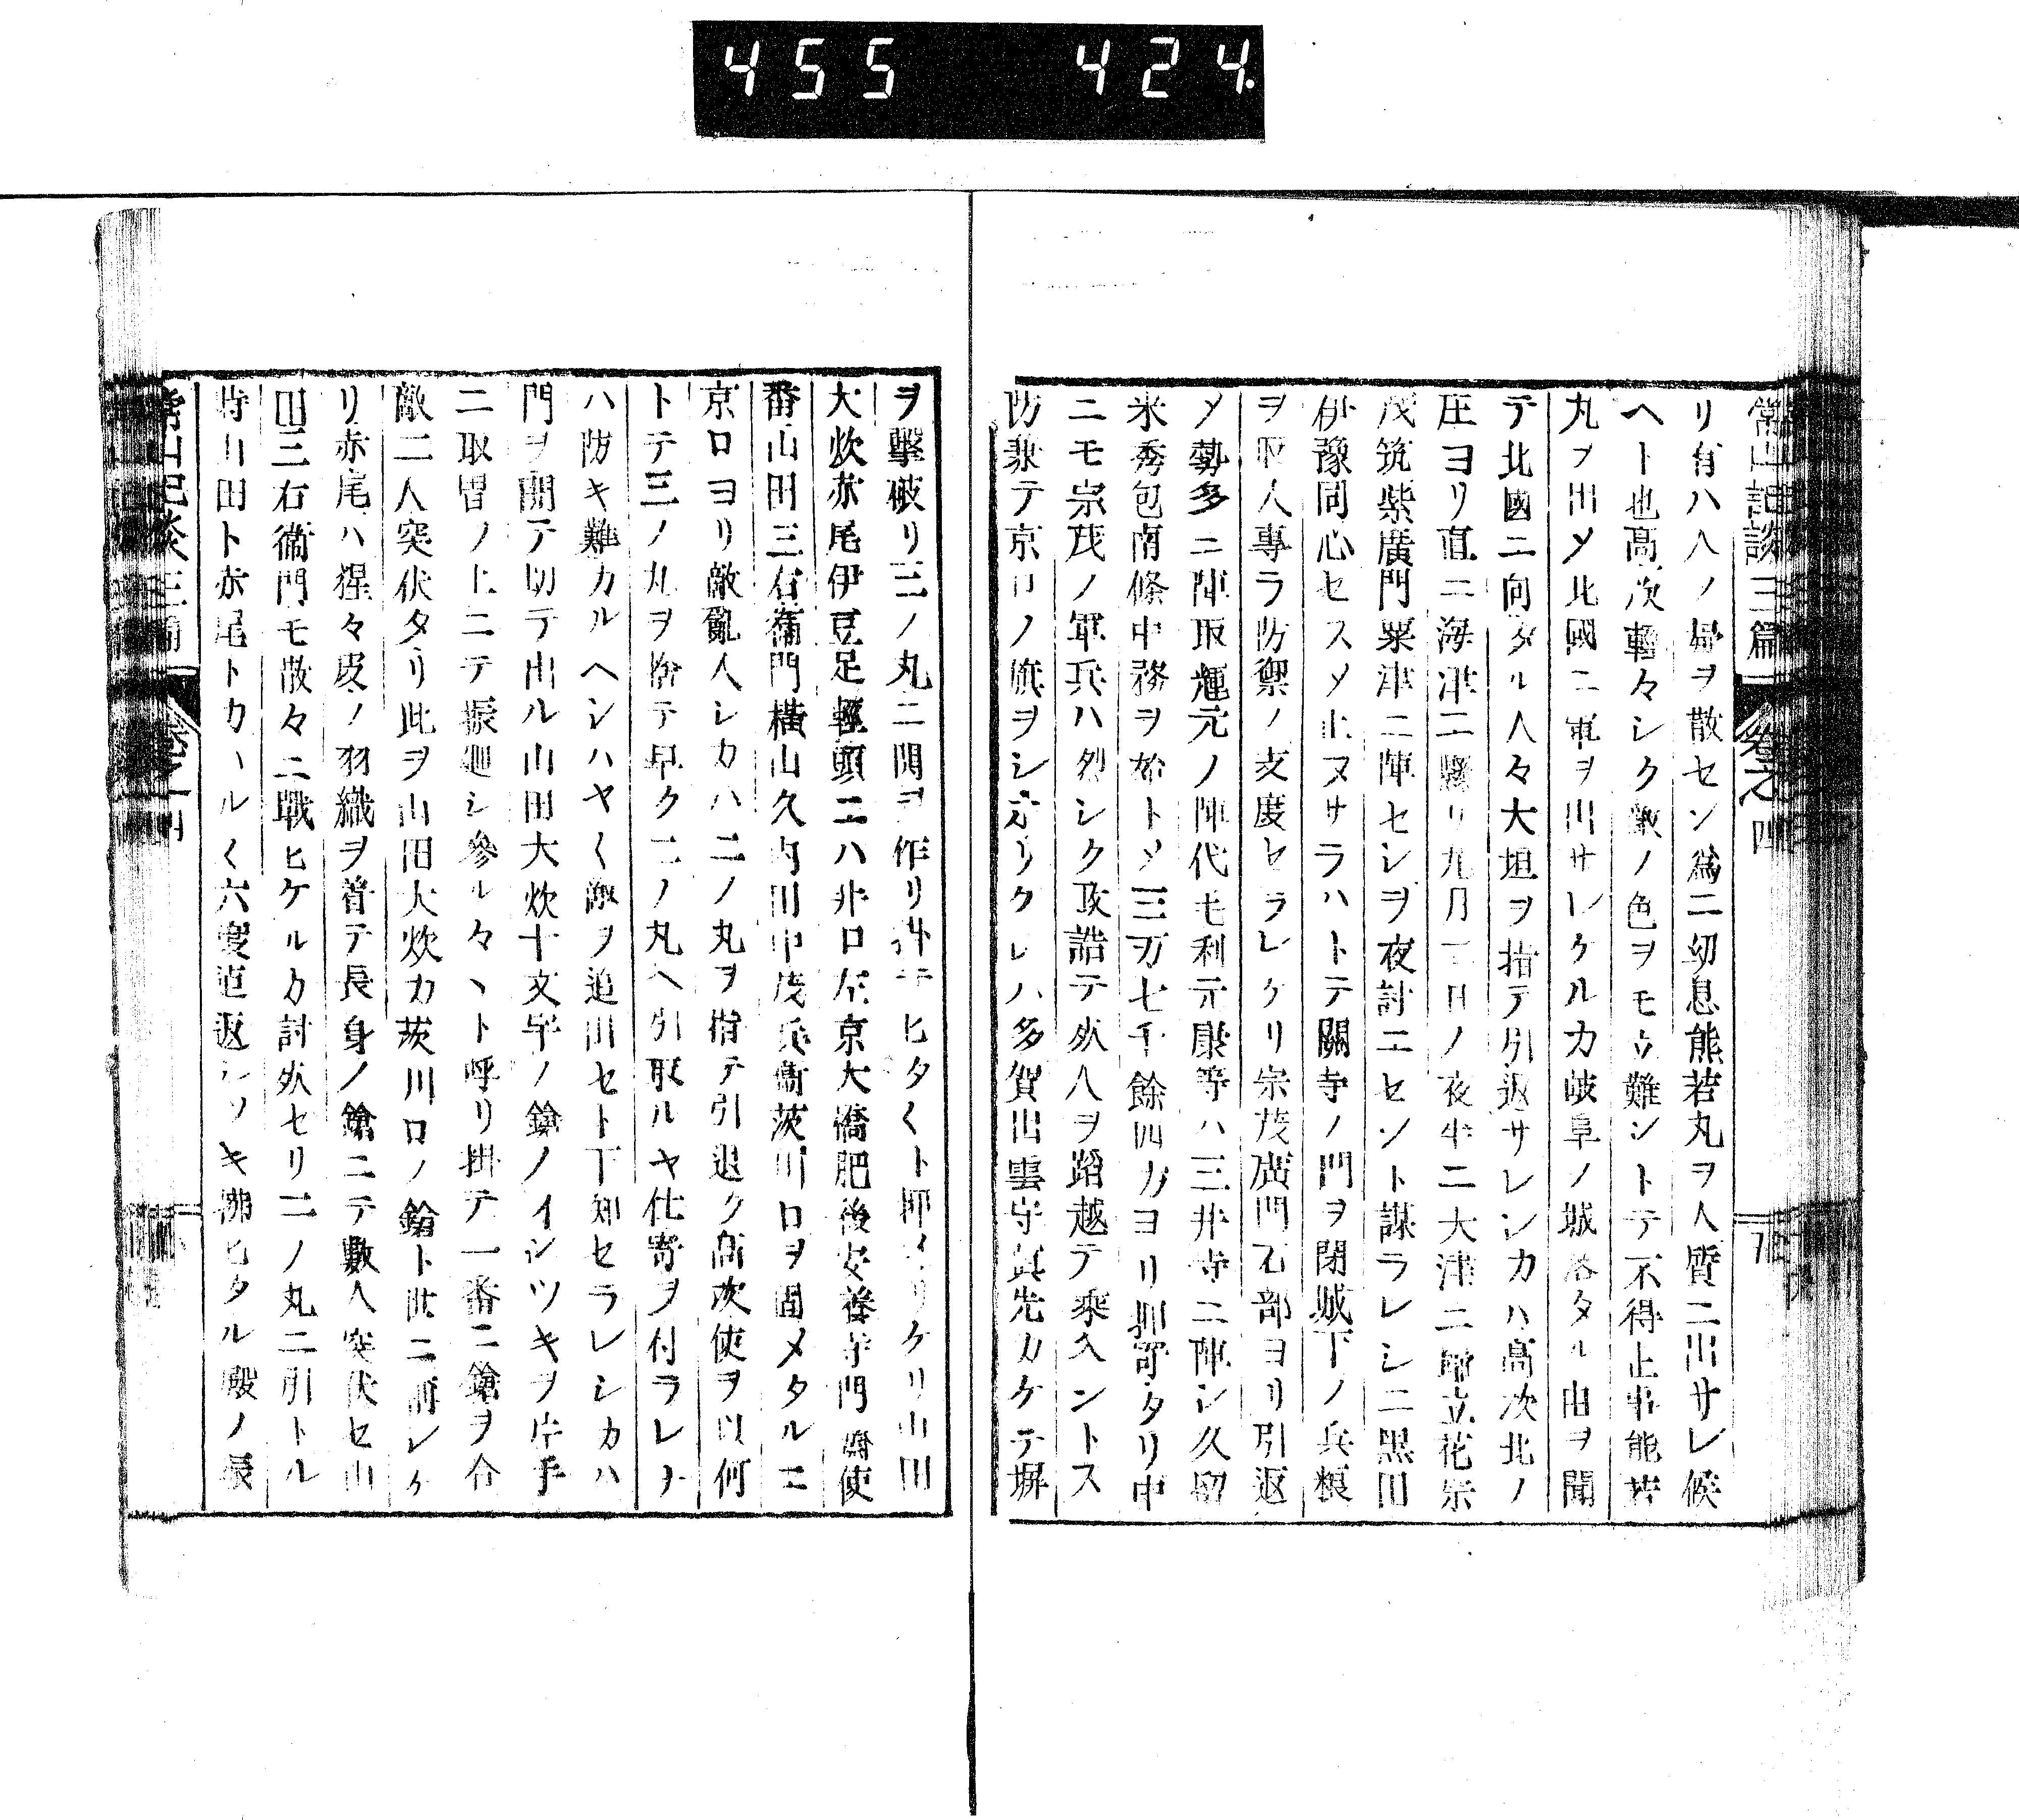 455 424
常山記談三篇 卷之四
リ有ハ人ノ歸ヲ散セン爲ニ幼息熊若丸ヲ人質ニ出サレ候
ヘト也高次輕々シク敵ノ色ヲモ立難シトテ不得止事能若
丸ヲ出メ北國ニ軍ヲ出サレケルカ岐阜ノ城落タル由ヲ聞
テ北國ニ向タル人々大垣ヲ指テ引返サレシカハ高次北ノ
庄ヨリ直ニ海津ニ懸リ九月一日ノ夜半ニ大津ニ歸立花宗
茂筑紫廣門粟津ニ陣セシヲ夜討ニセント謀ラレシニ黒田
伊豫同心セスメ止ヌサラハトテ關寺ノ門ヲ閉城下ノ兵粮
ヲ取入專ラ防禦ノ支度セラレケリ宗茂廣門石部ヨリ引返
メ勢多ニ陣取輝元ノ陣代毛利元康等ハ三井寺ニ陣シ久留
米秀包南條中務ヲ始トメ三万七千餘四方ヨリ押寄タリ中
ニモ宗茂ノ軍兵ハ烈シク攻詰テ死人ヲ踏越テ乘入ントス
防兼テ京口ノ旗ヲシホリクレハ多賀出雲守眞先カケテ塀
ヲ撃破リ三ノ丸ニ鬨ヲ作リ掛テヒタ〱ト押イリケリ山田
大炊赤尾伊豆足輕頭ニハ井口左京大橋肥後安養寺門齋使
番山田三右衞門横山久内川中茂兵衞茨川口ヲ固メタルニ
京口ヨリ敵亂入シカハ二ノ丸ヲ指テ引退ク高次使ヲ以何
トテ三ノ丸ヲ捨テ早クニノ丸ヘ引取ルヤ仕寄ヲ付ラレナ
ハ防キ難カルヘシハヤ〱敵ヲ追出セト下知セラレシカハ
門ヲ開テ切テ出ル山田大炊十文字ノ鎗ノイシツキヲ片手
ニ取冑ノ上ニテ振廻シ參ル々ヽト呼リ掛テ一番ニ鎗ヲ合
敵二人突伏タリ此ヲ山田大炊カ茨川口ノ鎗ト世ニ稱シケ
リ赤尾ハ猩々皮ノ羽織ヲ着テ長身ノ鎗ニテ數人突伏セ山
田三右衞門モ散々ニ戰ヒケルカ討死セリ二ノ丸ニ引トル
時山田ト赤尾トカハル〱六度迄返シツキ拂ヒタル殿ノ振
常山記談三篇 卷之四